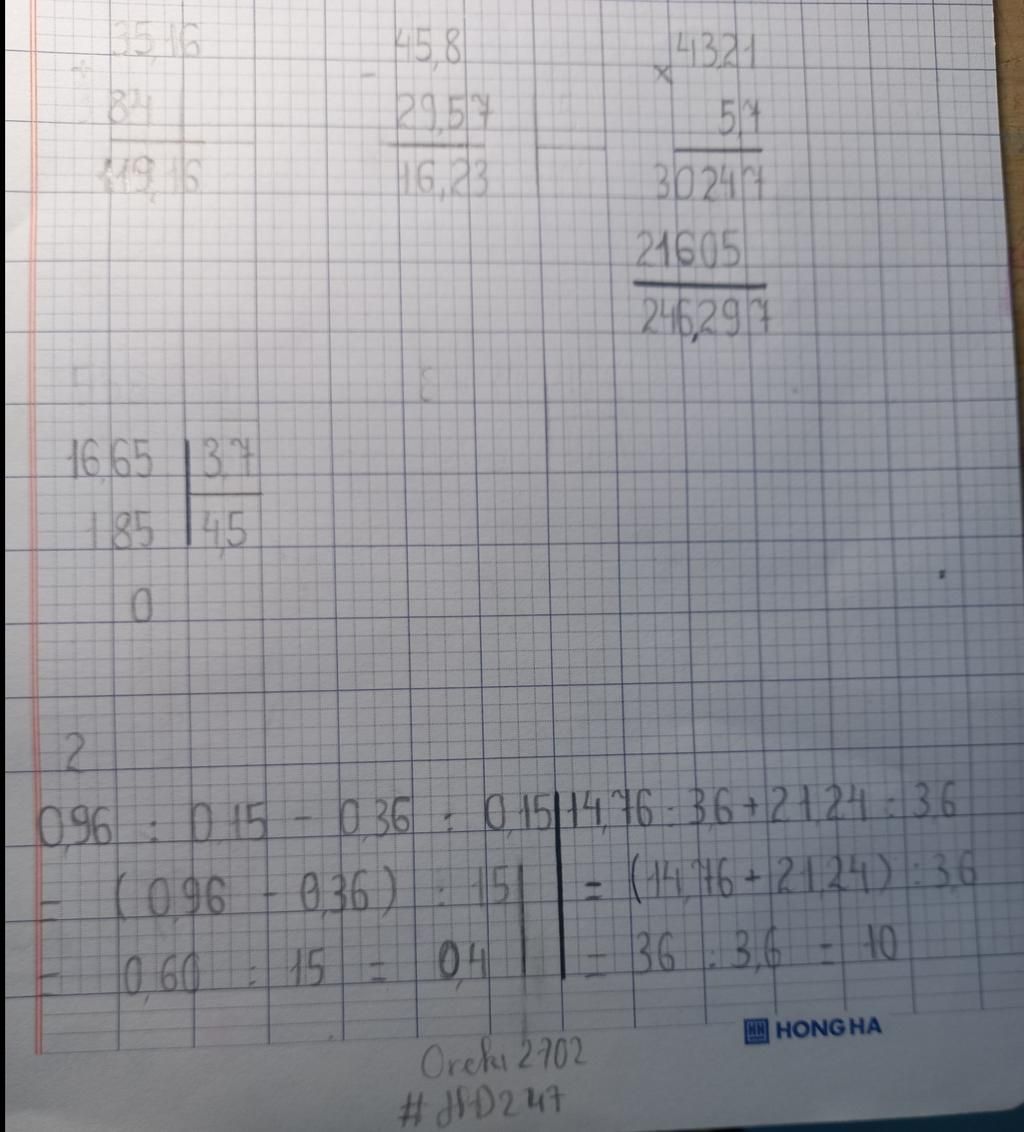 35,16
+
84
119,16
45,8
-
29,57
16,23
43,21
x
5,7
30247
21605
246,297
16,65 3,7
185 4,5
0
2
0,96 : 0,15 - 0,36 : 0,15
= (0,96 - 0,36) : 15
= 0,60 : 15 = 0,4
14,76 : 3,6 + 21,24 : 3,6
= (14,76 + 21,24) : 3,6
= 36 : 3,6 = 10
HH HONG HA
2702